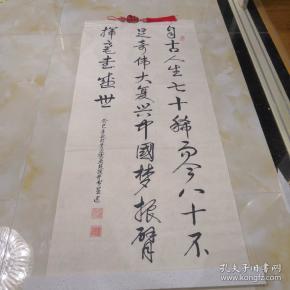 自古人生七十稀而今八十不
足奇伟大复兴中國梦振臂
挥毫書盛世
孔夫子旧书网